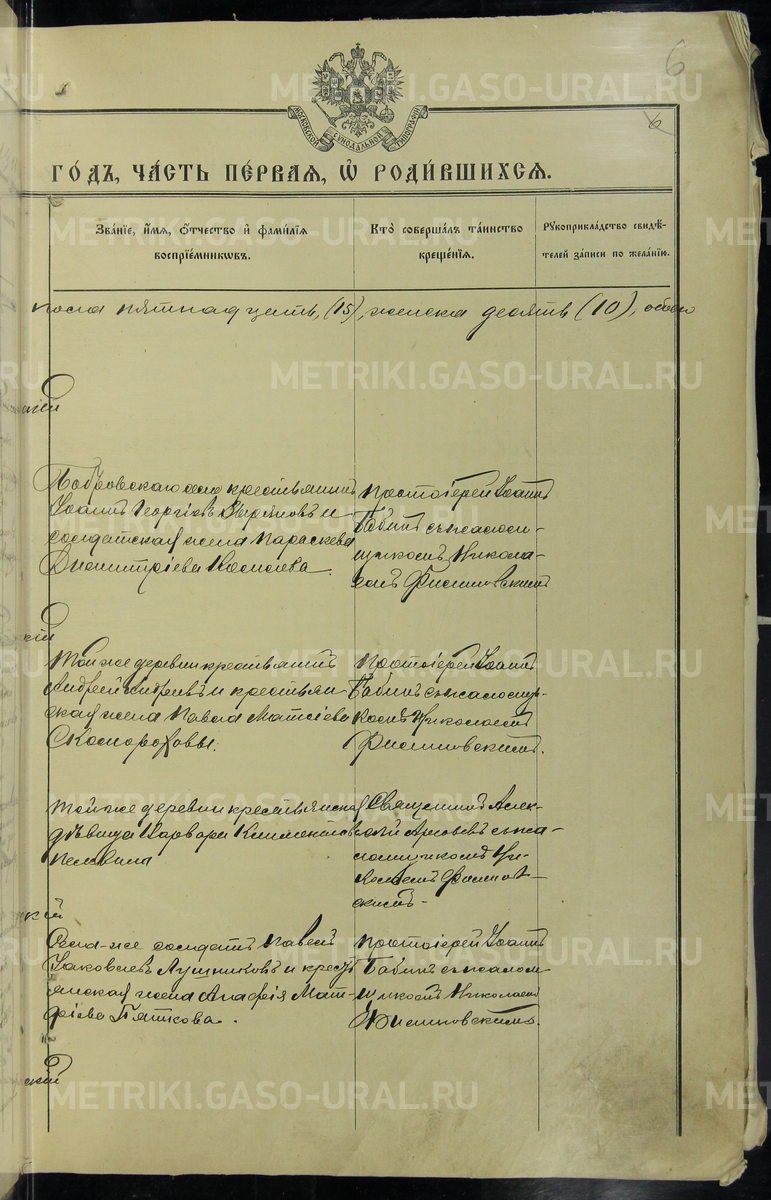 6
6
МОСКОВСКОЙ СѴНОДАЛЬНОЙ ТИПОГРАФІИ
ГОДЪ, ЧАСТЬ ПЕРВАЯ, Ѡ РОДИВШИХСЯ.
Званіе, имя, отчество и фамилія
воспріемниковъ.
Кто совершалъ таинство
крещенія.
Рукоприкладство свидѣ-
телей записи по желанію.
пола пятнадцать, (15), женска десять (10), обоего
Бобровскаго села крестьянинъ
Іоаннъ Георгіевъ Зыряновъ и
солдатская жена Параскева
Димитріева
Протоіерей Іоаннъ
Бабинъ съ псаломщи-
комъ Никола-
емъ
Той же деревни крестьянинъ
Андрей Андреевъ и крестьян-
ская жена Павла Матѳіева
Скомороховы.
Протоіерей Іоаннъ
Бабинъ съ псаломщи-
комъ Николаемъ
Той же деревни крестьянская
дѣвица Варвара Климентова
Священникъ Алек-
сѣй съ пса-
ломщикомъ Ни-
колаемъ
Села же солдатъ Павелъ
Іаковлевъ Лушниковъ и кресть-
янская жена Агафія
Пяткова.
Протоіерей Іоаннъ
Бабинъ съ псалом-
щикомъ Николаемъ
METRIKI.GASO-URAL.RU